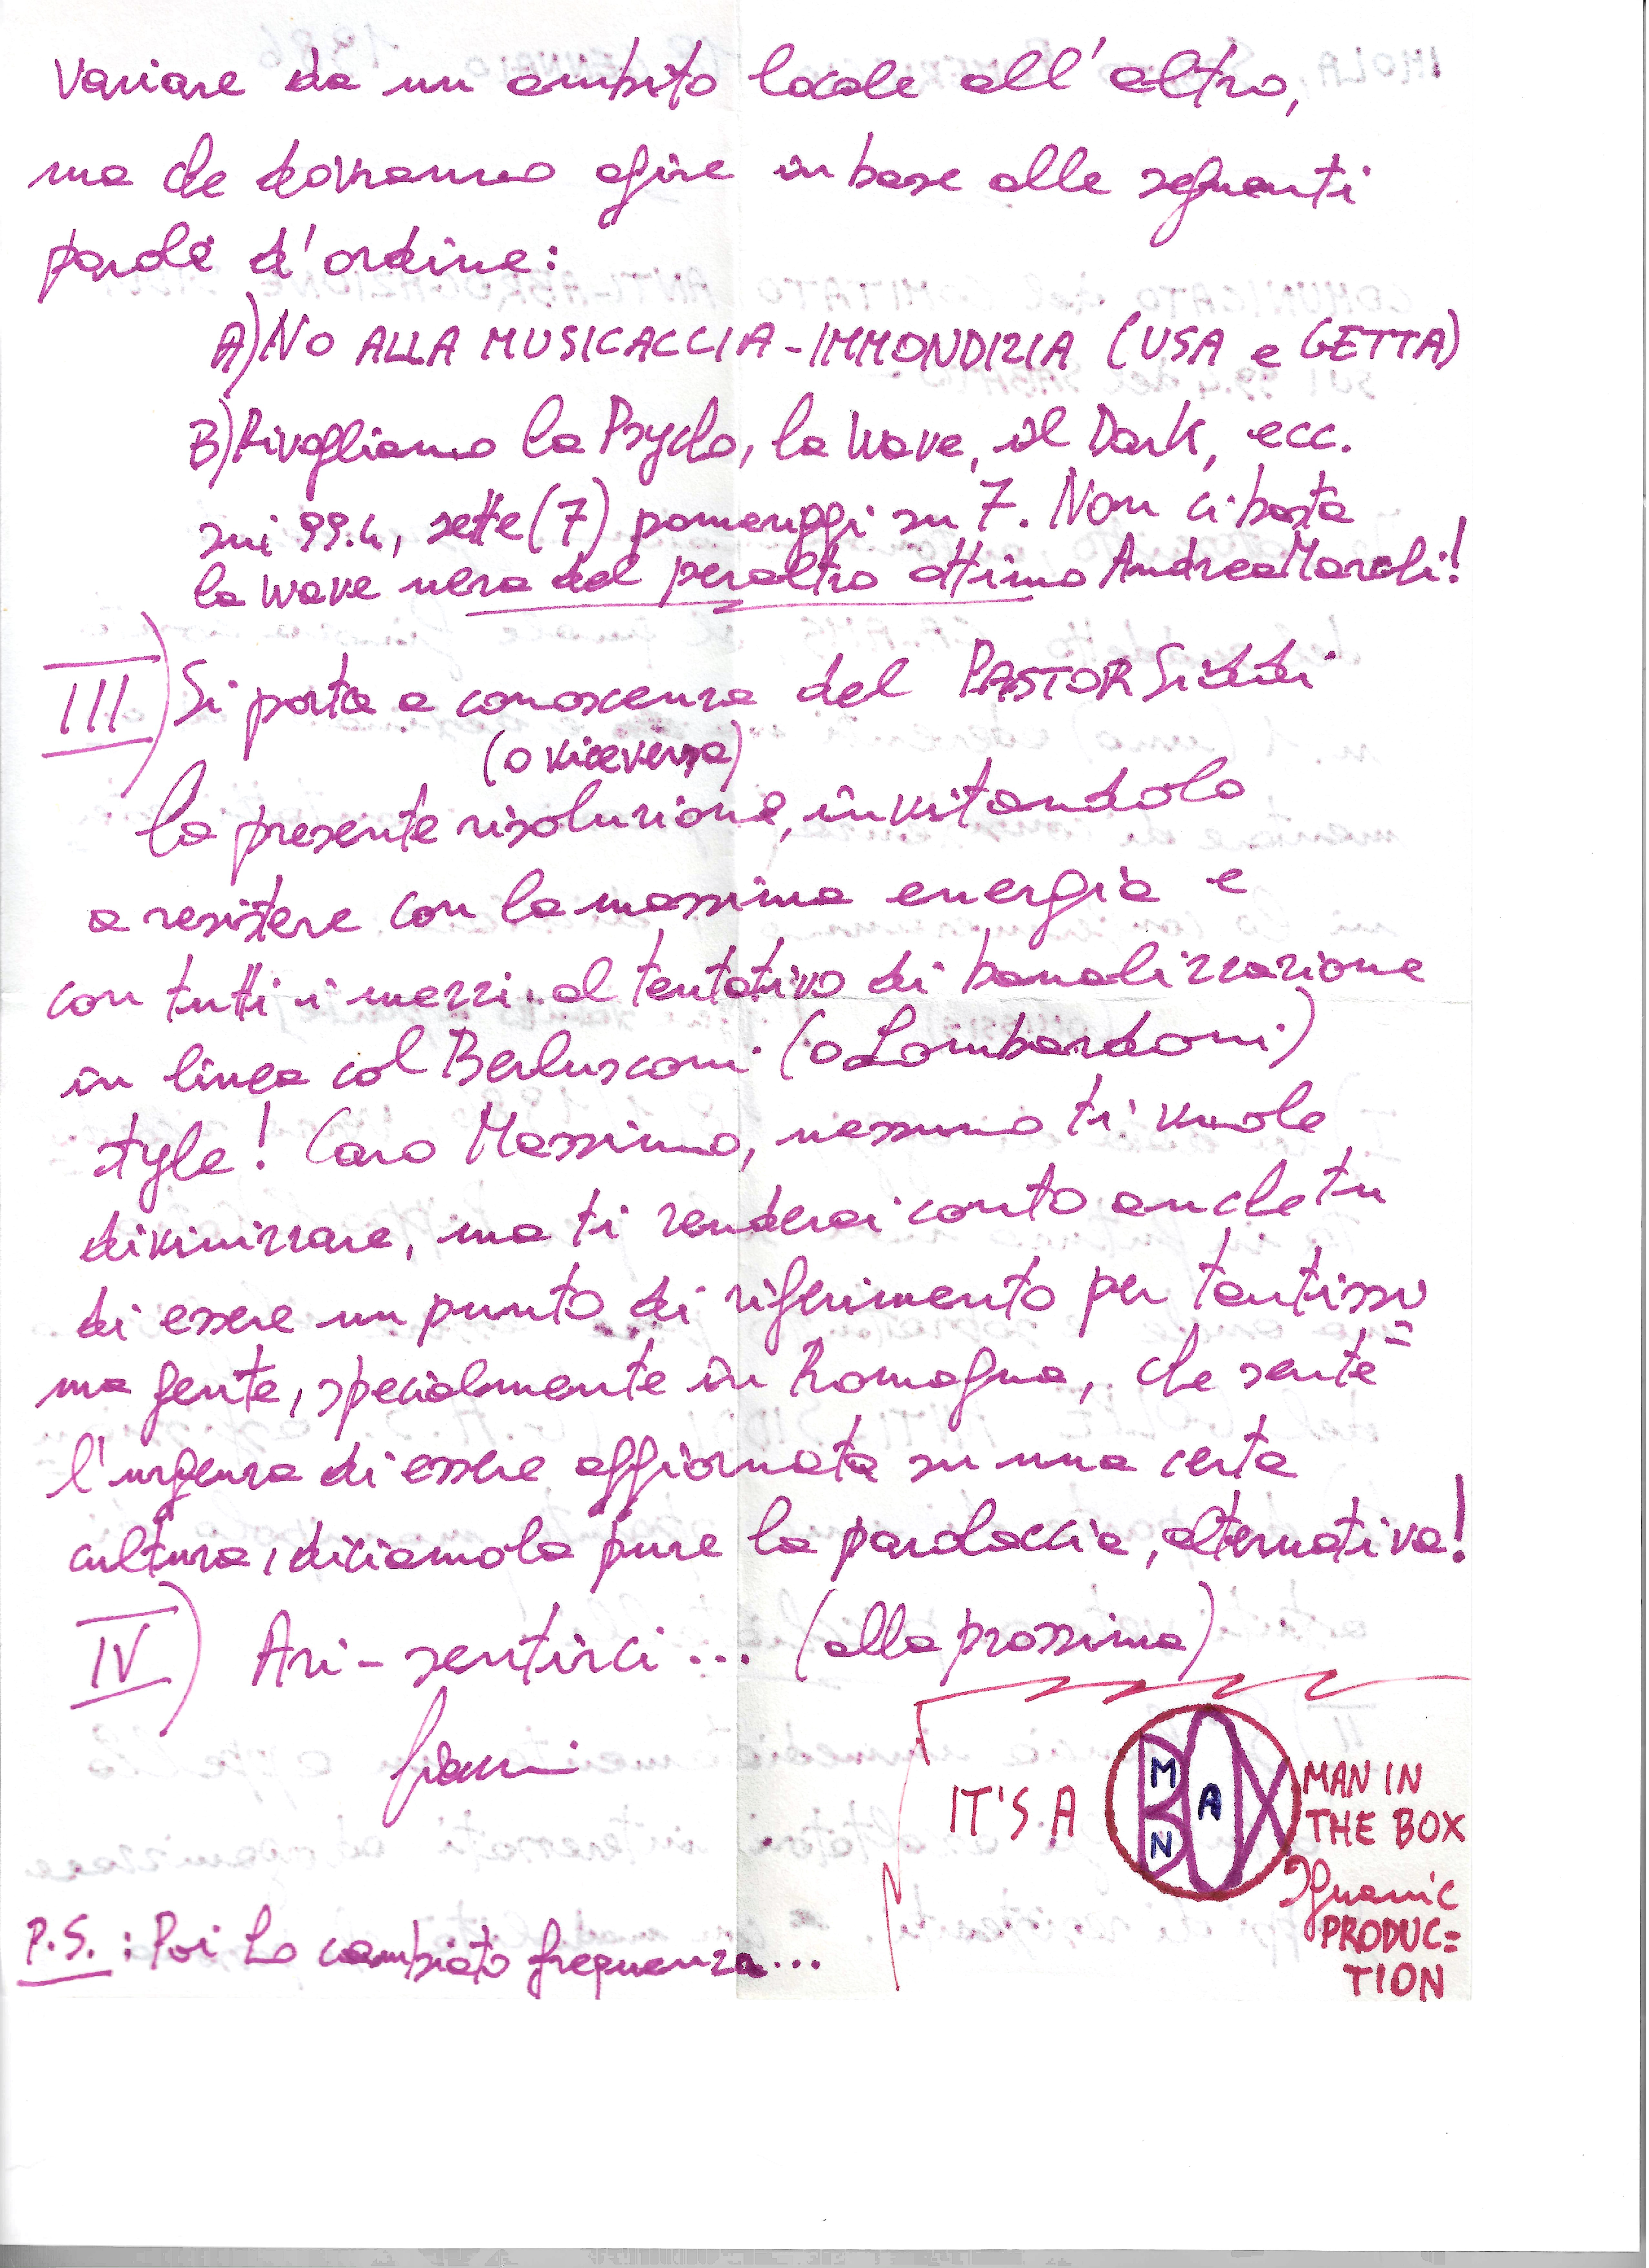 variare da un ambito locale all'altro,
ma che dovranno agire in base alle seguenti
parole d'ordine:
A) NO ALLA MUSICACCIA-IMMONDIZIA (USA e GETTA)
B) Rivogliamo la Psycho, la Wave, il Dark, ecc.
sui 99.4, sette (7) pomeriggi su 7. Non ci basta
la wave nera del peraltro ottimo Andrea Maroli!
III) Si porta a conoscenza del PASTOR Siddi
(o viceversa)
la presente risoluzione, invitandolo
a resistere con la massima energia e
con tutti i mezzi al tentativo di banalizzazione
in linea col Berlusconi (o Lombardoni)
style! Caro Massimo, nessuno ti vuole
divinizzare, ma ti renderai conto anche tu
di essere un punto di riferimento per tantissi=
ma gente, specialmente in Romagna, che sente
l'urgenza di essere aggiornata su una certa
cultura, diciamola pure la parolaccia, alternativa!
IV) Ari-sentirci... (alla prossima)
IT'S A
M
A
N
MAN IN
THE BOX
PRODUC=
TION
P.S.: Poi ho cambiato frequenza...